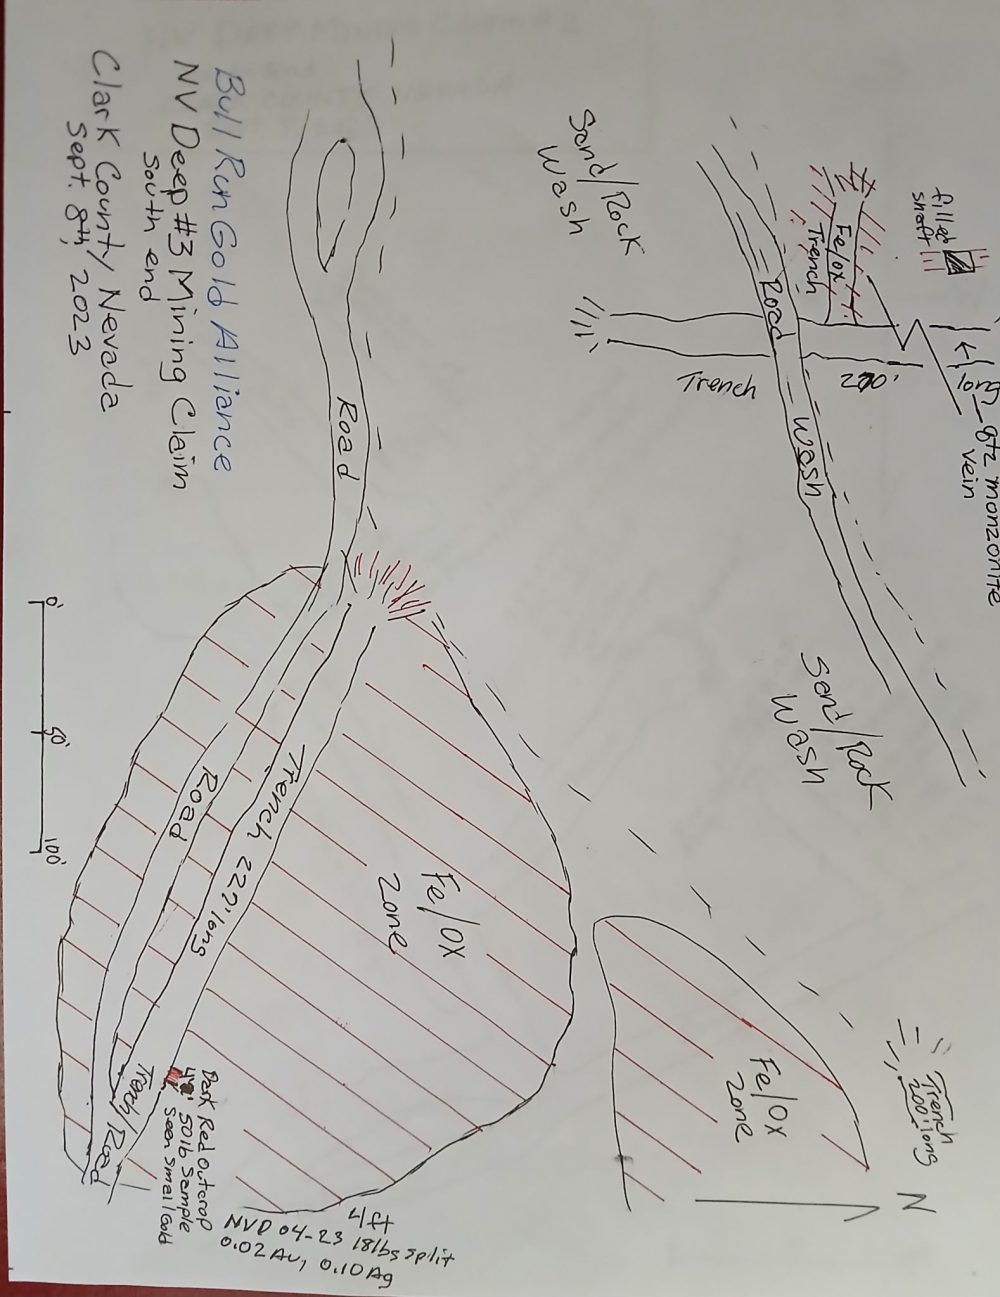 Bull Run Gold Alliance
NV Deep #3 Mining Claim
South end
Clark County Nevada
Sept. 8th, 2023
Sand/Rock
Wash
filled
shaft
Fe/ox
Trench
Road
Wash
Trench
long
qtz monzonite
vein
Sand/Rock
Wash
Road
0'
50'
100'
Road
Trench 227' long
Fe/OX
Zone
Fe/OX
Zone
Trench
200' long
N
Trench/Road
Dark Red Outcrop
50lb Sample
Seen Small Gold
4/ft
NVD 04-23 18lbs split
0.02 Au, 0.10 Ag